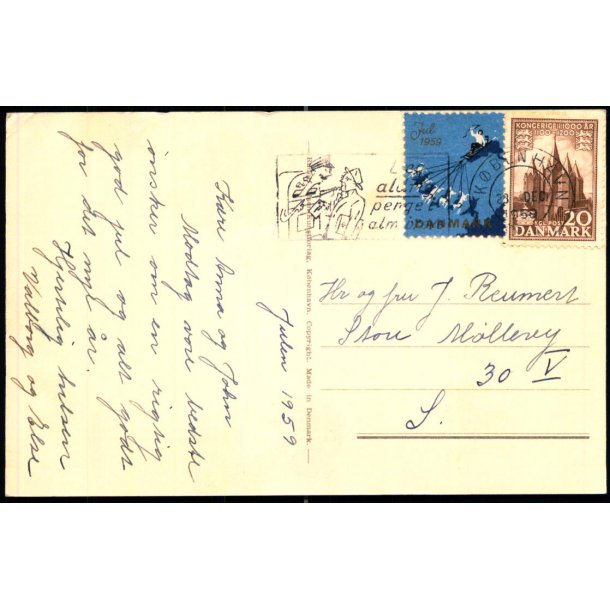 Julen 1959
Kære Anna og John
Modtag vore bedste
ønsker om en rigtig
god jul og alt godt
for det nye år.
Hjertelig hilsen
Valborg og Else
København. Copyright. Made in Denmark.
Jul
1959
DANMARK
KONGERIGE I 1000 ÅR
1100-1200
20
DANMARK
KØBENHAVN
DEC.
1959
Hr og fru J. Reumert
Store Møllevej
30 V
S.